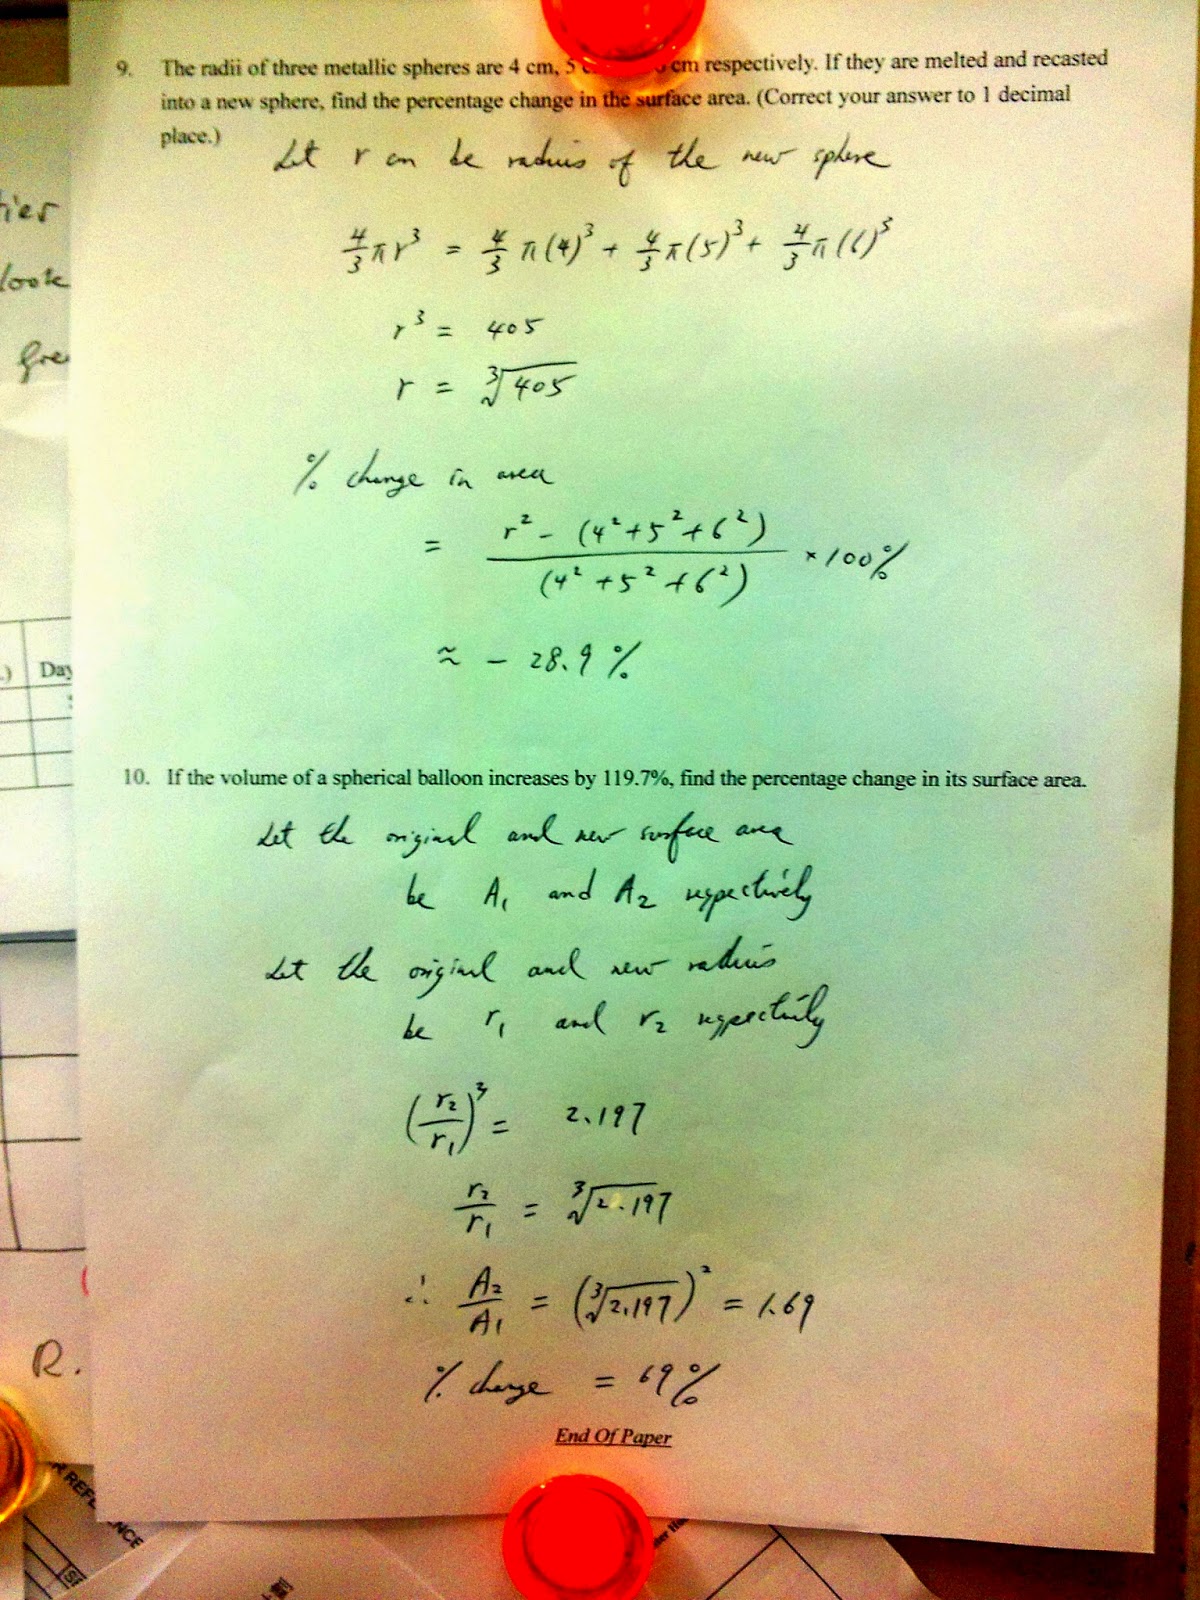 9. The radii of three metallic spheres are 4 cm, 5 cm respectively. If they are melted and recasted
into a new sphere, find the percentage change in the surface area. (Correct your answer to 1 decimal
place.)
Let r cm be radius of the new sphere
4/3 π r³ = 4/3 π (4)³ + 4/3 π (5)³ + 4/3 π (6)³
r³ = 405
r = ³√405
% change in area
= r² - (4² + 5² + 6²) / (4² + 5² + 6²) × 100%
≈ - 28.9 %
10. If the volume of a spherical balloon increases by 119.7%, find the percentage change in its surface area.
Let the original and new surface area
be A₁ and A₂ respectively
Let the original and new radius
be r₁ and r₂ respectively
(r₂/r₁)³ = 2.197
r₂/r₁ = ³√2.197
∴ A₂/A₁ = (³√2.197)² = 1.69
% change = 69%
End Of Paper
look
Day
R.